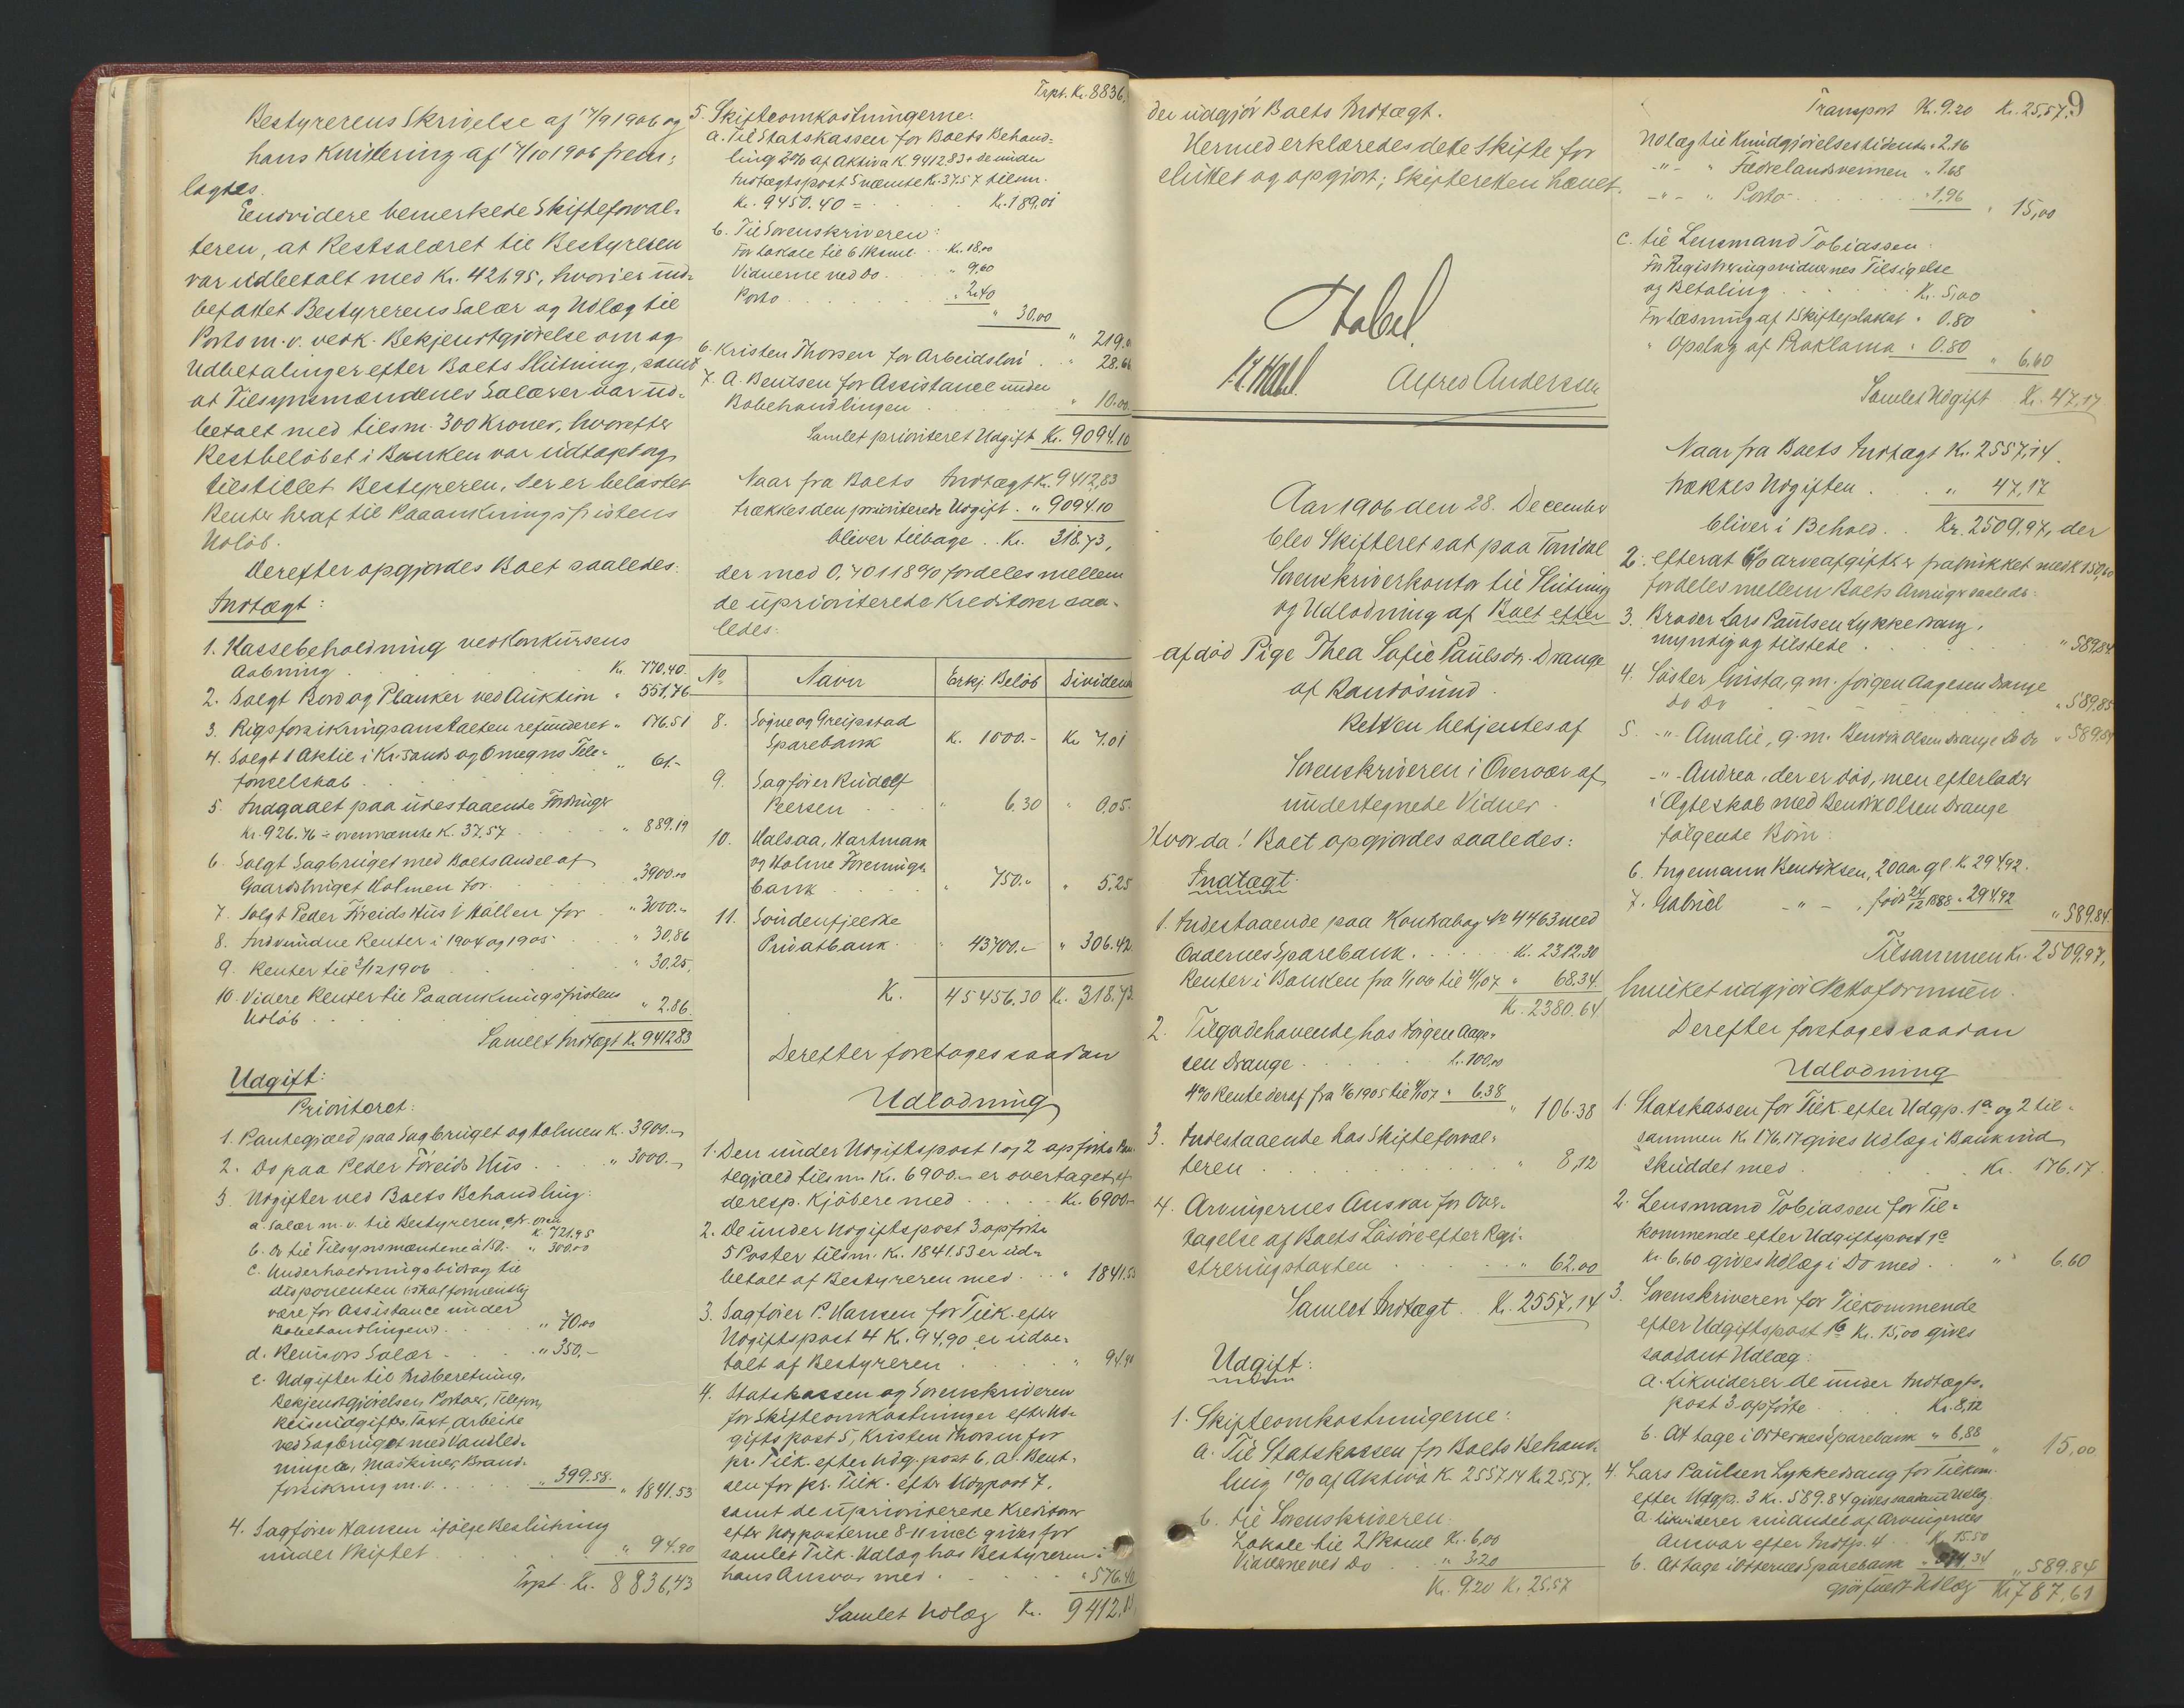 Bestyrerens Skrivelse af 17/9 1906 og
hans Kvittering af 17/10 1906 frem-
lagtes.
Endvidere bemerkede Skifteforval-
teren, at Restsalæret til Bestyreren
var udbetalt med Kr. 421,95, hvori er ind-
befattet Bestyrerens Salær og Udlæg til
Porto m. v. vedk. Bekjendtgjörelse om og
Udbetalinger efter Boets Slutning, samt
at Tilsynsmændenes Salærer var ud-
betalt med tilsm. 300 Kroner, hvorefter
Restbelöbet i Banken var udtaget og
tilstillet Bestyreren, der er belastet
Renter heraf til Paaankningsfristens
Udlöb.
Derefter opgjordes Boet saaledes:
Indtægt:
1. Kassebeholdning ved Konkursens
Aabning . . . Kr. 770,40.
2. Solgt Bord og Planker ved Auktion " 551,76
3. Rigsforsikringsanstalten refunderet " 176.51
4. Solgt 1 Aktie i Kr.sands og Omegns Tele-
fonselskab . . . " 61.-
5. Indgaaet paa udestaaende Fordringer
Kr. 926.76 ÷ ovennævnte K. 37.57 . . " 889.19
6. Solgt Sagbruget med Boets Andel af
Gaardsbruget Holmen for . . . " 3900.00
7. Solgt Peder Föreids Hus i Hallen for " 3000.-
8. Indvundne Renter i 1904 og 1905 " 30,86
9. Renter til 3/12 1906 . . . " 30,25,
10. Videre Renter til Paaankningsfristens
Udlöb . . . " 2.86.
Samlet Indtægt K. 9412.83
Udgift:
Prioriteret:
1. Pantegjæld paa Sagbruget og Holmen K. 3900.-
2. Do paa Peder Föreids Hus . . . " 3000.-
3. Udgifter ved Boets Behandling:
a. Salær m. v. til Bestyreren, efr. oven K. 721,95
b. Do til Tilsynsmændene à 150.- " 300.00
c. Underholdningsbidrag til
disponenten (skal formentlig
være for Assistance under
Bobehandlingen) . . . " 70.00
d. Revisors Salær . . " 350,-
e. Udgifter til Indberetning,
Bekjendtgjörelser, Portoer, Telefon,
Reiseudgifter, Taxt, arbeide
ved Sagbruget med Vandled-
ninger, Maskiner, Brand-
forsikring m. v. . . . " 399.58. " 1841.53
4. Sagförer Hansen ifölge Beslutning
under Skiftet . . . " 94.90
Trpt. Kr. 8836,43
Trpt. Kr. 8836.
5. Skifteomkostningerne:
a. Til Statskassen for Boets Behand-
ling 2% af Aktiva K. 9412.83 + de under
Indtægtspost 5 nævnte Kr. 37.57 tilsm.
Kr. 9450.40 = . . . Kr. 189.01
b. Til Sorenskriveren:
For Lokale til 6 Sksml. . Kr. 18.00
Vidnerne ved Do . . . " 9,60
Porto . . . " 2.40
" 30.00
" 219.
6. Kristen Thorsen for Arbeidslön . " 28.66
7. A. Bentsen for Assistance under
Bobehandlingen . . . " 10.00.
Samlet prioriteret Udgift Kr. 9094.10
Naar fra Boets Indtægt K. 9412,83
trækkes den prioriterede Udgift . " 9094.10
bliver tilbage . . Kr. 318.73,
der med 0,701189% fordeles mellem
de uprioriterede Kreditorer saa-
ledes:
No Navn Erkj. Belöb Dividende
8. Sogne og Greipstad
Sparebank K. 1000.- Kr 7.01
9. Sagförer Rudolf
Bersen . . " 6.30 " 0,05.
10. Halsaa, Hartmark
og Holme Forenings-
bank . . . " 750.- " 5,25
11. Söndenfjeldske
Privatbank " 43700.- " 306.42
Kr. 45456.30 Kr. 318.73
Derefter foretoges saadan
Udlodning
1. Den under Udgiftspost 1 og 2 opförte Pan-
tegjæld tilsm. Kr. 6900.- er overtaget af
de resp. Kjöbere med . . . Kr. 6900-
2. De under Udgiftspost 3 opförte
5 Poster tilsm. Kr. 1841.53 er ud-
betalt af Bestyreren med . . " 1841.53
3. Sagförer P. Hansen for Tilk. efter
Udgiftspost 4 Kr. 94,90 er udbe-
talt af Bestyreren . . . " 94.90
4. Statskassen og Sorenskriveren
for Skifteomkostninger efter Ud-
giftspost 5, Kristen Thorsen for
pr. Tilk. efter Udg. post 6, A. Bent-
sen for pr. Tilk. efter Udgpost 7.
samt de uprioriterede Kreditorer
efter Udgposterne 8-11 incl gives for
samlet Tilk. Udlæg hos Bestyreren i
hans Ansvar med . . . " 576.40
Samlet Udlæg Kr. 9412.83
der udgjör Boets Indtægt.
Hermed erklæredes dette Skifte for
sluttet og opgjort; Skifteretten hævet.
Stabel
Alfred Anderssen
Aar 1906 den 28. December
blev Skifteret sat paa Torridal
Sorenskriverkontor til Slutning
og Udlodning af Boet efter
afdöd Pige Thea Sofie Paulsdr. Drange
af Randösund.
Retten betjentes af
Sorenskriveren i Overvær af
undertegnede Vidner.
Hvorda! Boet opgjordes saaledes:
Indtægt
1. Indestaaende paa Kontrabog No 4463 med
Oddernes Sparebank . . . Kr. 2312,30
Renter i Banken fra 1/1 06 til 4/1 07 " 68.34.
Kr. 2380.64
2. Tilgodehavende hos Jörgen Aage-
sen Drange . . . Kr. 100,00
4% Rente deraf fra 1/6 1905 til 4/1 07 " 6.38
" 106.38
3. Indestaaende hos Skifteforval-
teren . . . " 8,12
4. Arvingernes Ansvar for Over-
tagelse af Boets Lösöre efter Regi-
streringstaxten . . . " 62.00
Samlet Indtægt . Kr. 2557,14
Udgift:
1. Skifteomkostningerne:
a. Til Statskassen for Boets Behand-
ling 1% af Aktiva K. 2557,14 Kr. 25.57.
b. til Sorenskriveren:
Lokale til 2 Sksml K. 6,00
Vidnerne ved Do . . " 3.20
Kr. 9.20 K. 25.57
9
Transport K. 9.20 Kr. 25,57.
Udlæg til Kundgjörelsestidende " 2.16
-"- " Fædrelandsvennen " 1.68
-"- " Porto . . . " 1,96
" 15,00
c. til Lensmand Tobiassen:
For Registreringsvidnernes Tilsigelse
og Betaling . . . Kr. 5,00
For Læsning af 1 Skifteplakat " 0.80
" Opslag af Proklama " 0.80
" 6.60
Samlet Udgift Kr. 47,17.
Naar fra Boets Indtægt Kr. 2557,14.
trækkes Udgiften . . " 47,17
bliver i Behold . . Kr. 2509,97, der
2. efterat 6% arveafgift er fratrukket med K 150,60
fordeles mellem Boets Arvinger saaledes:
3. Broder Lars Paulsen Lykkedrang,
myndig og tilstede . . . " 589,84
4. Söster Gusta, g. m. Jörgen Aagesen Drange
Do Do " 589,85
5. -"- Amalie, g. m. Bendix Olsen Drange Do Do " 589,84
-"- Andrea, der er död, men efterlader
i Ægteskab med Bendix Olsen Drange
fölgende Börn:
6. Ingemann Bendiksen, 20 aa. gl. K. 294,92.
7. Gabriel -"- , född 24/12 1888 " 294,92
" 589,84.
Tilsammen Kr. 2509,97,
hvilket udgjör Nettoformuen.
Derefter foretoges saadan
Udlodning
1. Statskassen for Tilk. efter Udgp. 1a og 2 til-
sammen K. 176,17 gives Udlæg i Bankind-
skuddet med . . . Kr. 176.17.
2. Lensmand Tobiassen for Til-
kommende efter Udgiftspost 1c
Kr. 6.60 gives Udlæg i Do med . . " 6.60
3. Sorenskriveren for Tilkommende
efter Udgiftspost 1b Kr. 15,00 gives
saadant Udlæg:
a. Likviderer de under Indtægts-
post 3 opförte . . . Kr. 8,12
b. At tage i Oddernes Sparebank " 6,88
" 15,00
4. Lars Paulsen Lykkedrang for Tilkom.
efter Udgp. 3 Kr. 589.84 gives saadant Udlæg:
a. likviderer sin andel af Arvingernes
Ansvar efter Indtp. 4 . . K. 15.50
b. At tage i Oddernes Sparebank " 574,34
" 589.84
gjör först Udlæg Kr. 787,61